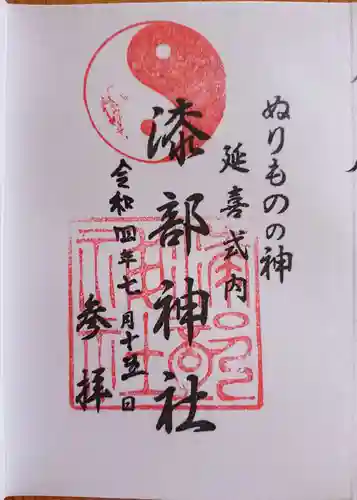 ぬりものの神
延喜式内
漆部神社
令和四年七月十五日
参拝